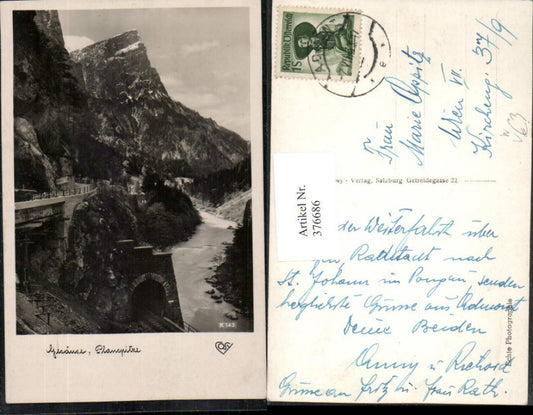 K 143
Gesäuse, Planspitze
Republik Österreich
Frau
Marie Appitz
Wien VII.
Kircheng. 37/9
W
V63
Verlag, Salzburg Getreidegasse 22
Artikel Nr.
376686
der Weiterfahrt über
Radstadt nach
St. Johann im Pongau, senden
herzlichste Grüsse aus Admont
Deine Beiden
Anny u. Richard
Grüsse an Fritz u. Frau Rath.
Echte Photographie